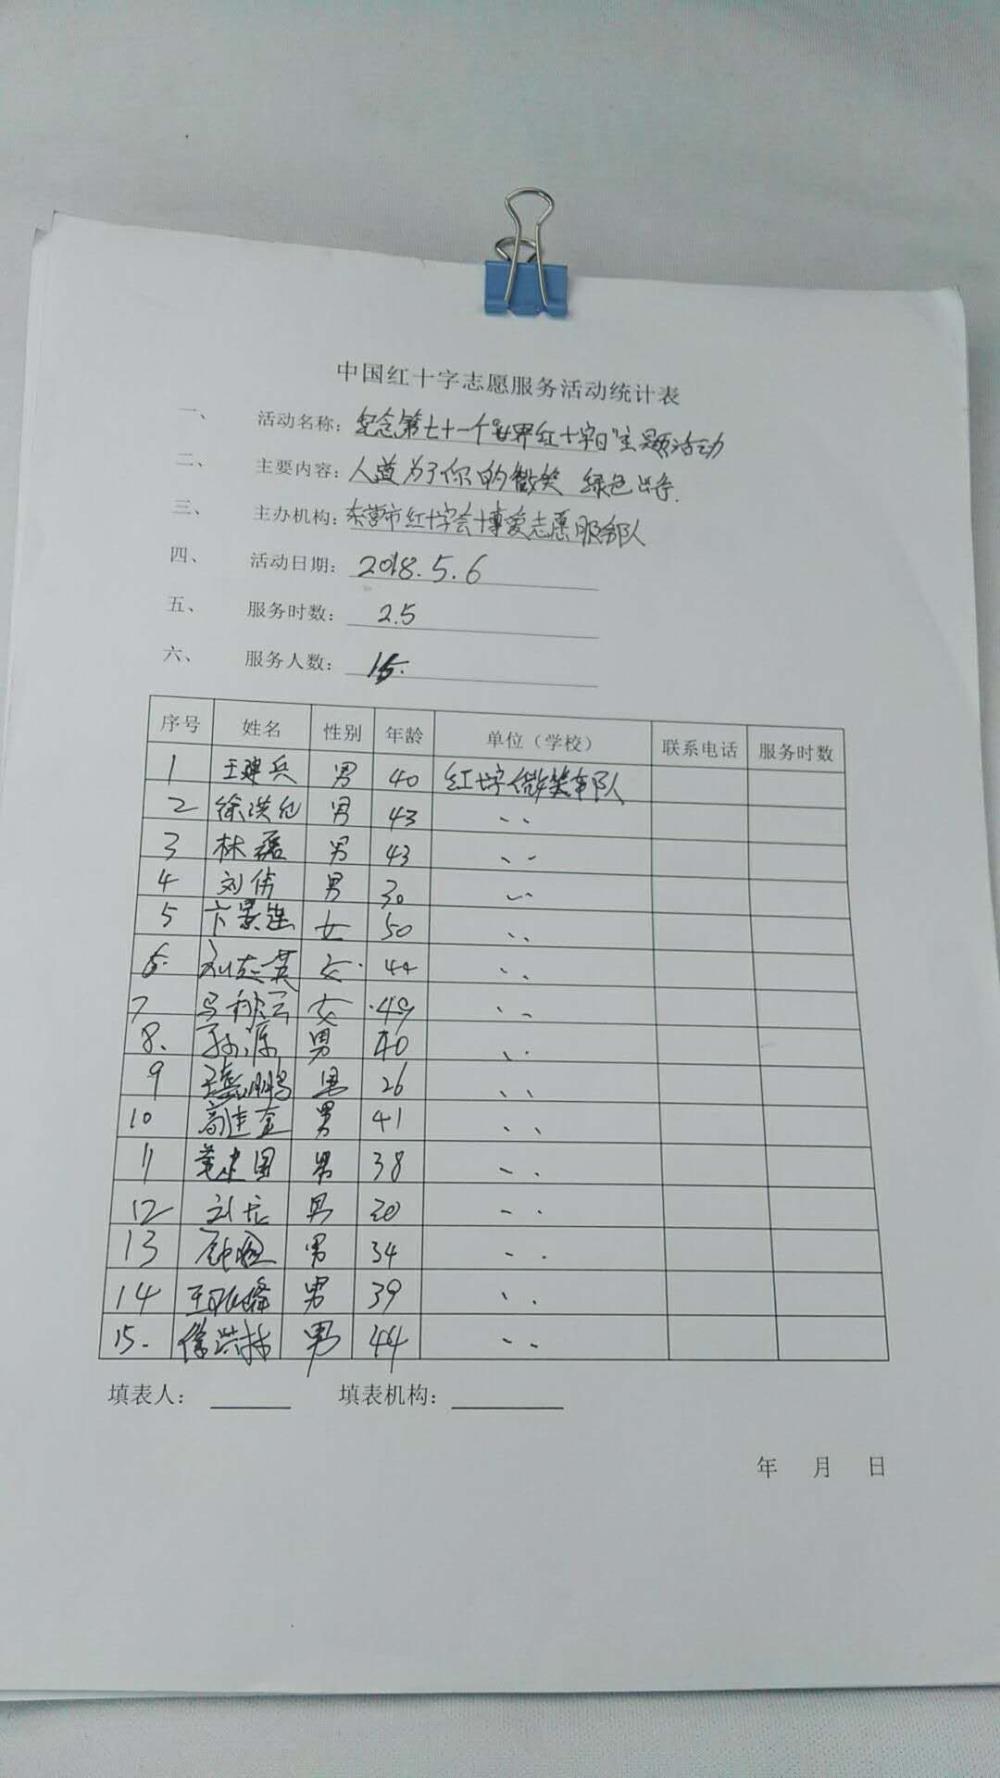 中国红十字志愿服务活动统计表
一、 活动名称：纪念第七十一个"世界红十字日"主题活动
二、 主要内容：人道为了你的微笑 绿色出行.
三、 主办机构：东营市红十字会博爱志愿服务队
四、 活动日期：2018.5.6
五、 服务时数：2.5
六、 服务人数：15.
序号 姓名 性别 年龄 单位（学校） 联系电话 服务时数
1 王建兵 男 40 红十字微笑车队
2 男 43 、、
3 林磊 男 43 、、
4 刘伟 男 30 、、
5 女 50 、、
6. 刘志英 女. 44 、、
7 马秋云 女 49 、、
8. 孙源 男 40 、、
9 男 26 、、
10 高连金 男 41 、、
11 建国 男 38 、、
12 男 30 、、
13 男 34 、、
14 男 39 、、
15. 男 44 、、
填表人： 填表机构：
年 月 日